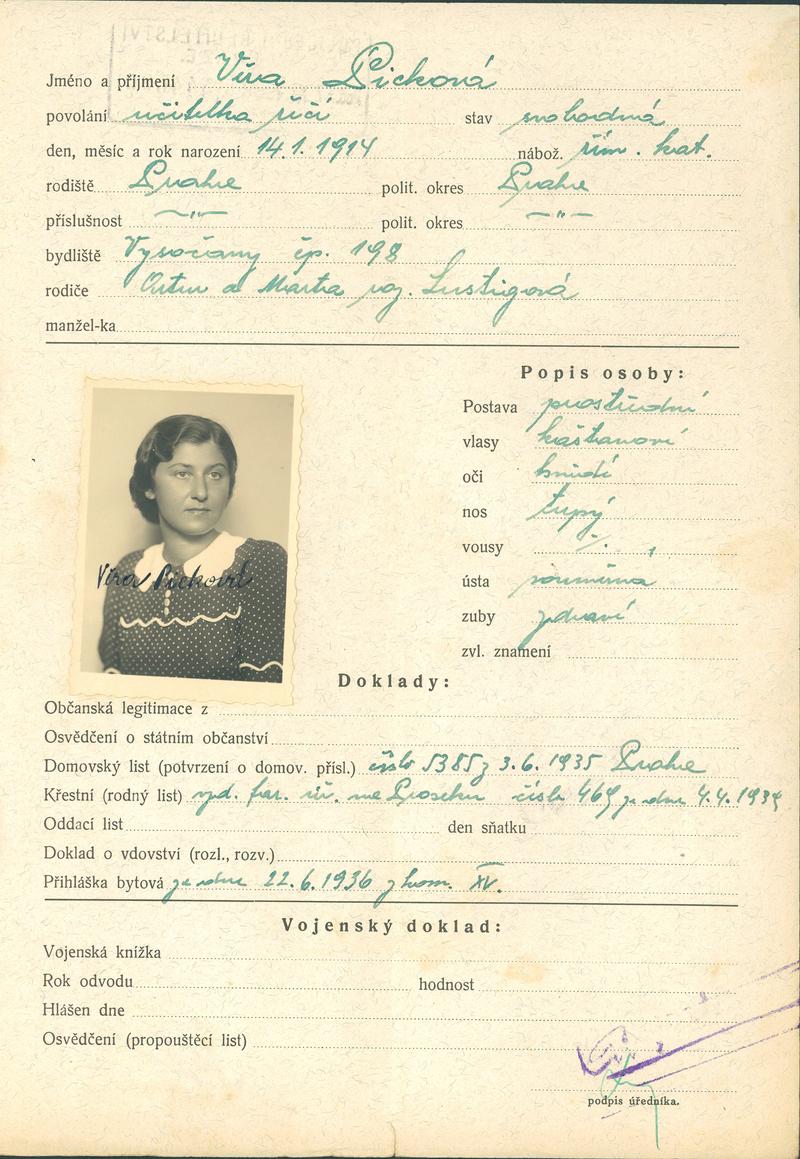 Jméno a příjmení Věra Picková
povolání učitelka řečí stav svobodná
den, měsíc a rok narození 14.1.1914 nábož. řím. kat.
rodiště Praha polit. okres Praha
příslušnost —"— polit. okres —"—
bydliště Vysočany čp. 198
rodiče Artur a Marta roz. Lustigová
manžel-ka
Popis osoby:
Postava prostřední
vlasy kaštanové
oči hnědé
nos tupý
vousy ·/·
ústa souměrná
zuby zdravé
zvl. znamení
Věra Picková
Doklady:
Občanská legitimace z
Osvědčení o státním občanství
Domovský list (potvrzení o domov. přísl.) číslo 5385 z 3.6.1935 Praha
Křestní (rodný list) vyd. far. úř. na Proseku číslo 469 ze dne 4.4.1934
Oddací list den sňatku
Doklad o vdovství (rozl., rozv.)
Přihláška bytová ze dne 22.6.1936 z kom. XV.
Vojenský doklad:
Vojenská knížka
Rok odvodu hodnost
Hlášen dne
Osvědčení (propouštěcí list)
podpis úředníka.